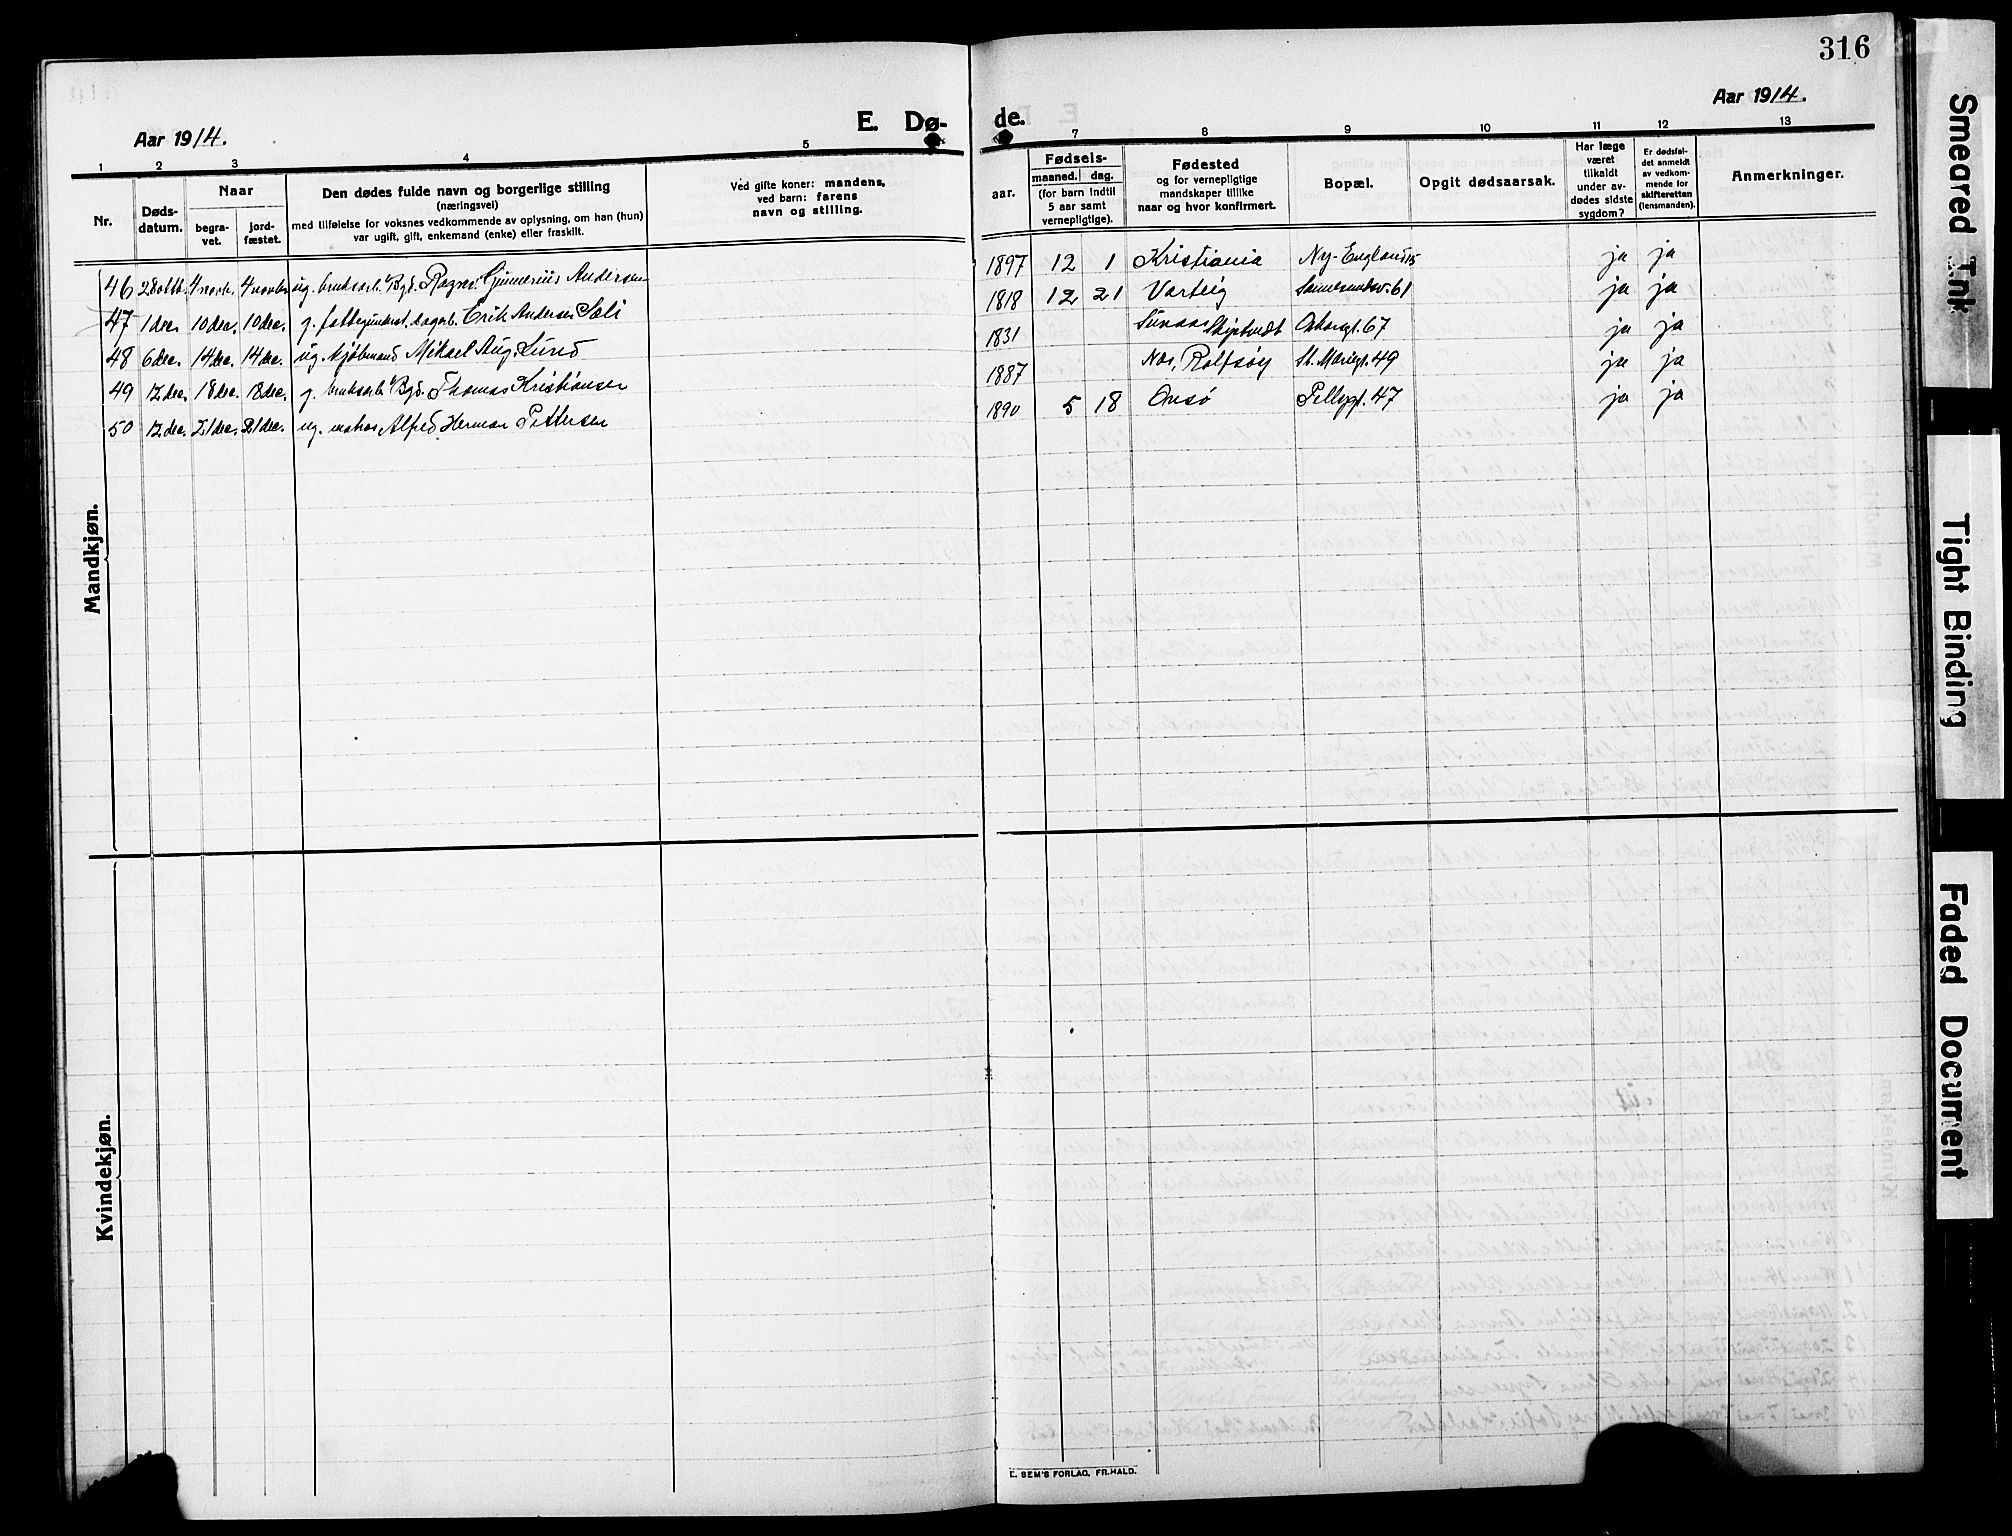 316
Aar 1914.
E. Dø-
de.
Aar 1914.
1 2 3 4 5 7 7 8 9 10 11 12 13
Nr.
Døds-
datum.
Naar
begra-
vet.
jord-
fæstet.
Den dødes fulde navn og borgerlige stilling
(næringsvei)
med tilføielse for voksnes vedkommende av oplysning, om han (hun)
var ugift, gift, enkemand (enke) eller fraskilt.
Ved gifte koner: mandens,
ved barn: farens
navn og stilling.
aar.
Fødsels-
maaned. dag.
(for barn indtil
5 aar samt
vernepligtige).
Fødested
og for vernepligtige
mandskaper tillike
naar og hvor konfirmert.
Bopæl.
Opgit dødsaarsak.
Har læge
været
tilkaldt
under av-
dødes sidste
sygdom?
Er dødsfal-
det anmeldt
av vedkom-
mende for
skifteretten
(lensmanden).
Anmerkninger.
46 28 oktb. 4 novb. 4 novbr ug. bruksarb. Bgd. Ragnv. Gunnerius Andersen 1897 12 1 Kristiania Ny-England 15 ja ja
47 1 dec. 10 dec. 10 dec. g. fattigunderst. dagarb. Erik Andersen Sæli 1818 12 21 Varteig Sannesundsv. 61 ja ja
48 6 dec. 14 dec. 14 dec. ug. kjøbmand Mikael Aug. Lund 1831 Skiptvedt 67 ja ja
49 12 dec. 18 dec. 18 dec. g. bruksarb. Bgd. Thomas Kristiansen 1887 Nes, Rolfsøy St. Mariegt. 49 ja ja
50 12 dec. 21 dec. 21 dec. ug. matros Alfred Herman Pettersen 1890 5 18 Onsø Pellygt. 47 ja ja
Mandkjøn.
Kvindekjøn.
E. SEM'S FORLAG, FR.HALD.
Smeared Ink
Tight Binding
Faded Document